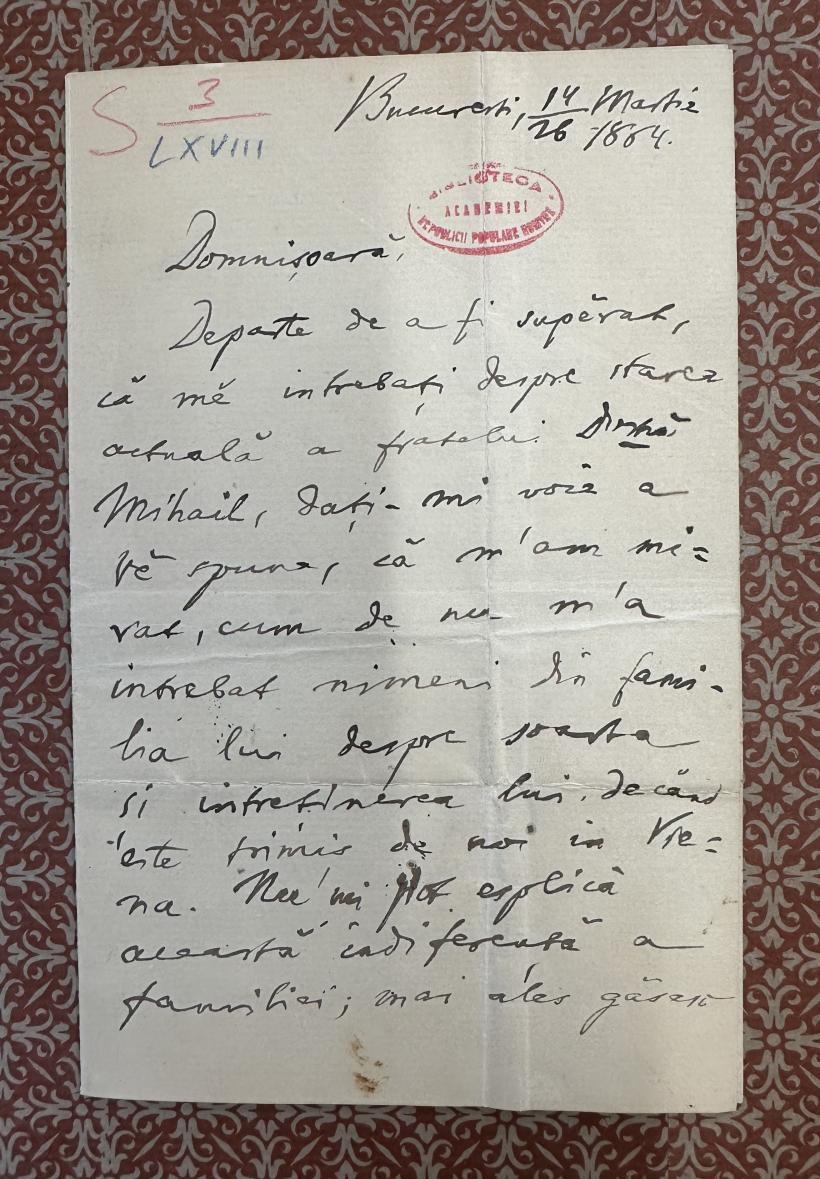 S 3
LXVIII
Bucuresti, 14/26 Martie 1884.
BIBLIOTECA
ACADEMIEI
REPUBLICII POPULARE ROMÎNE
Domnișoară,
Departe de a fi supĕrat,
că mĕ intrebați despre starea
actuală a fratelui
Mihail, dați-mi voie a
vĕ spune, că m'am mi=
rat, cum de nu m'a
intrebat nimeni din fami-
lia lui despre soarta
si intreținerea lui, de când
este trimis de noi in Vie=
na. Nu'mi pot esplică
această indiferență a
familiei; mai ales găsesc